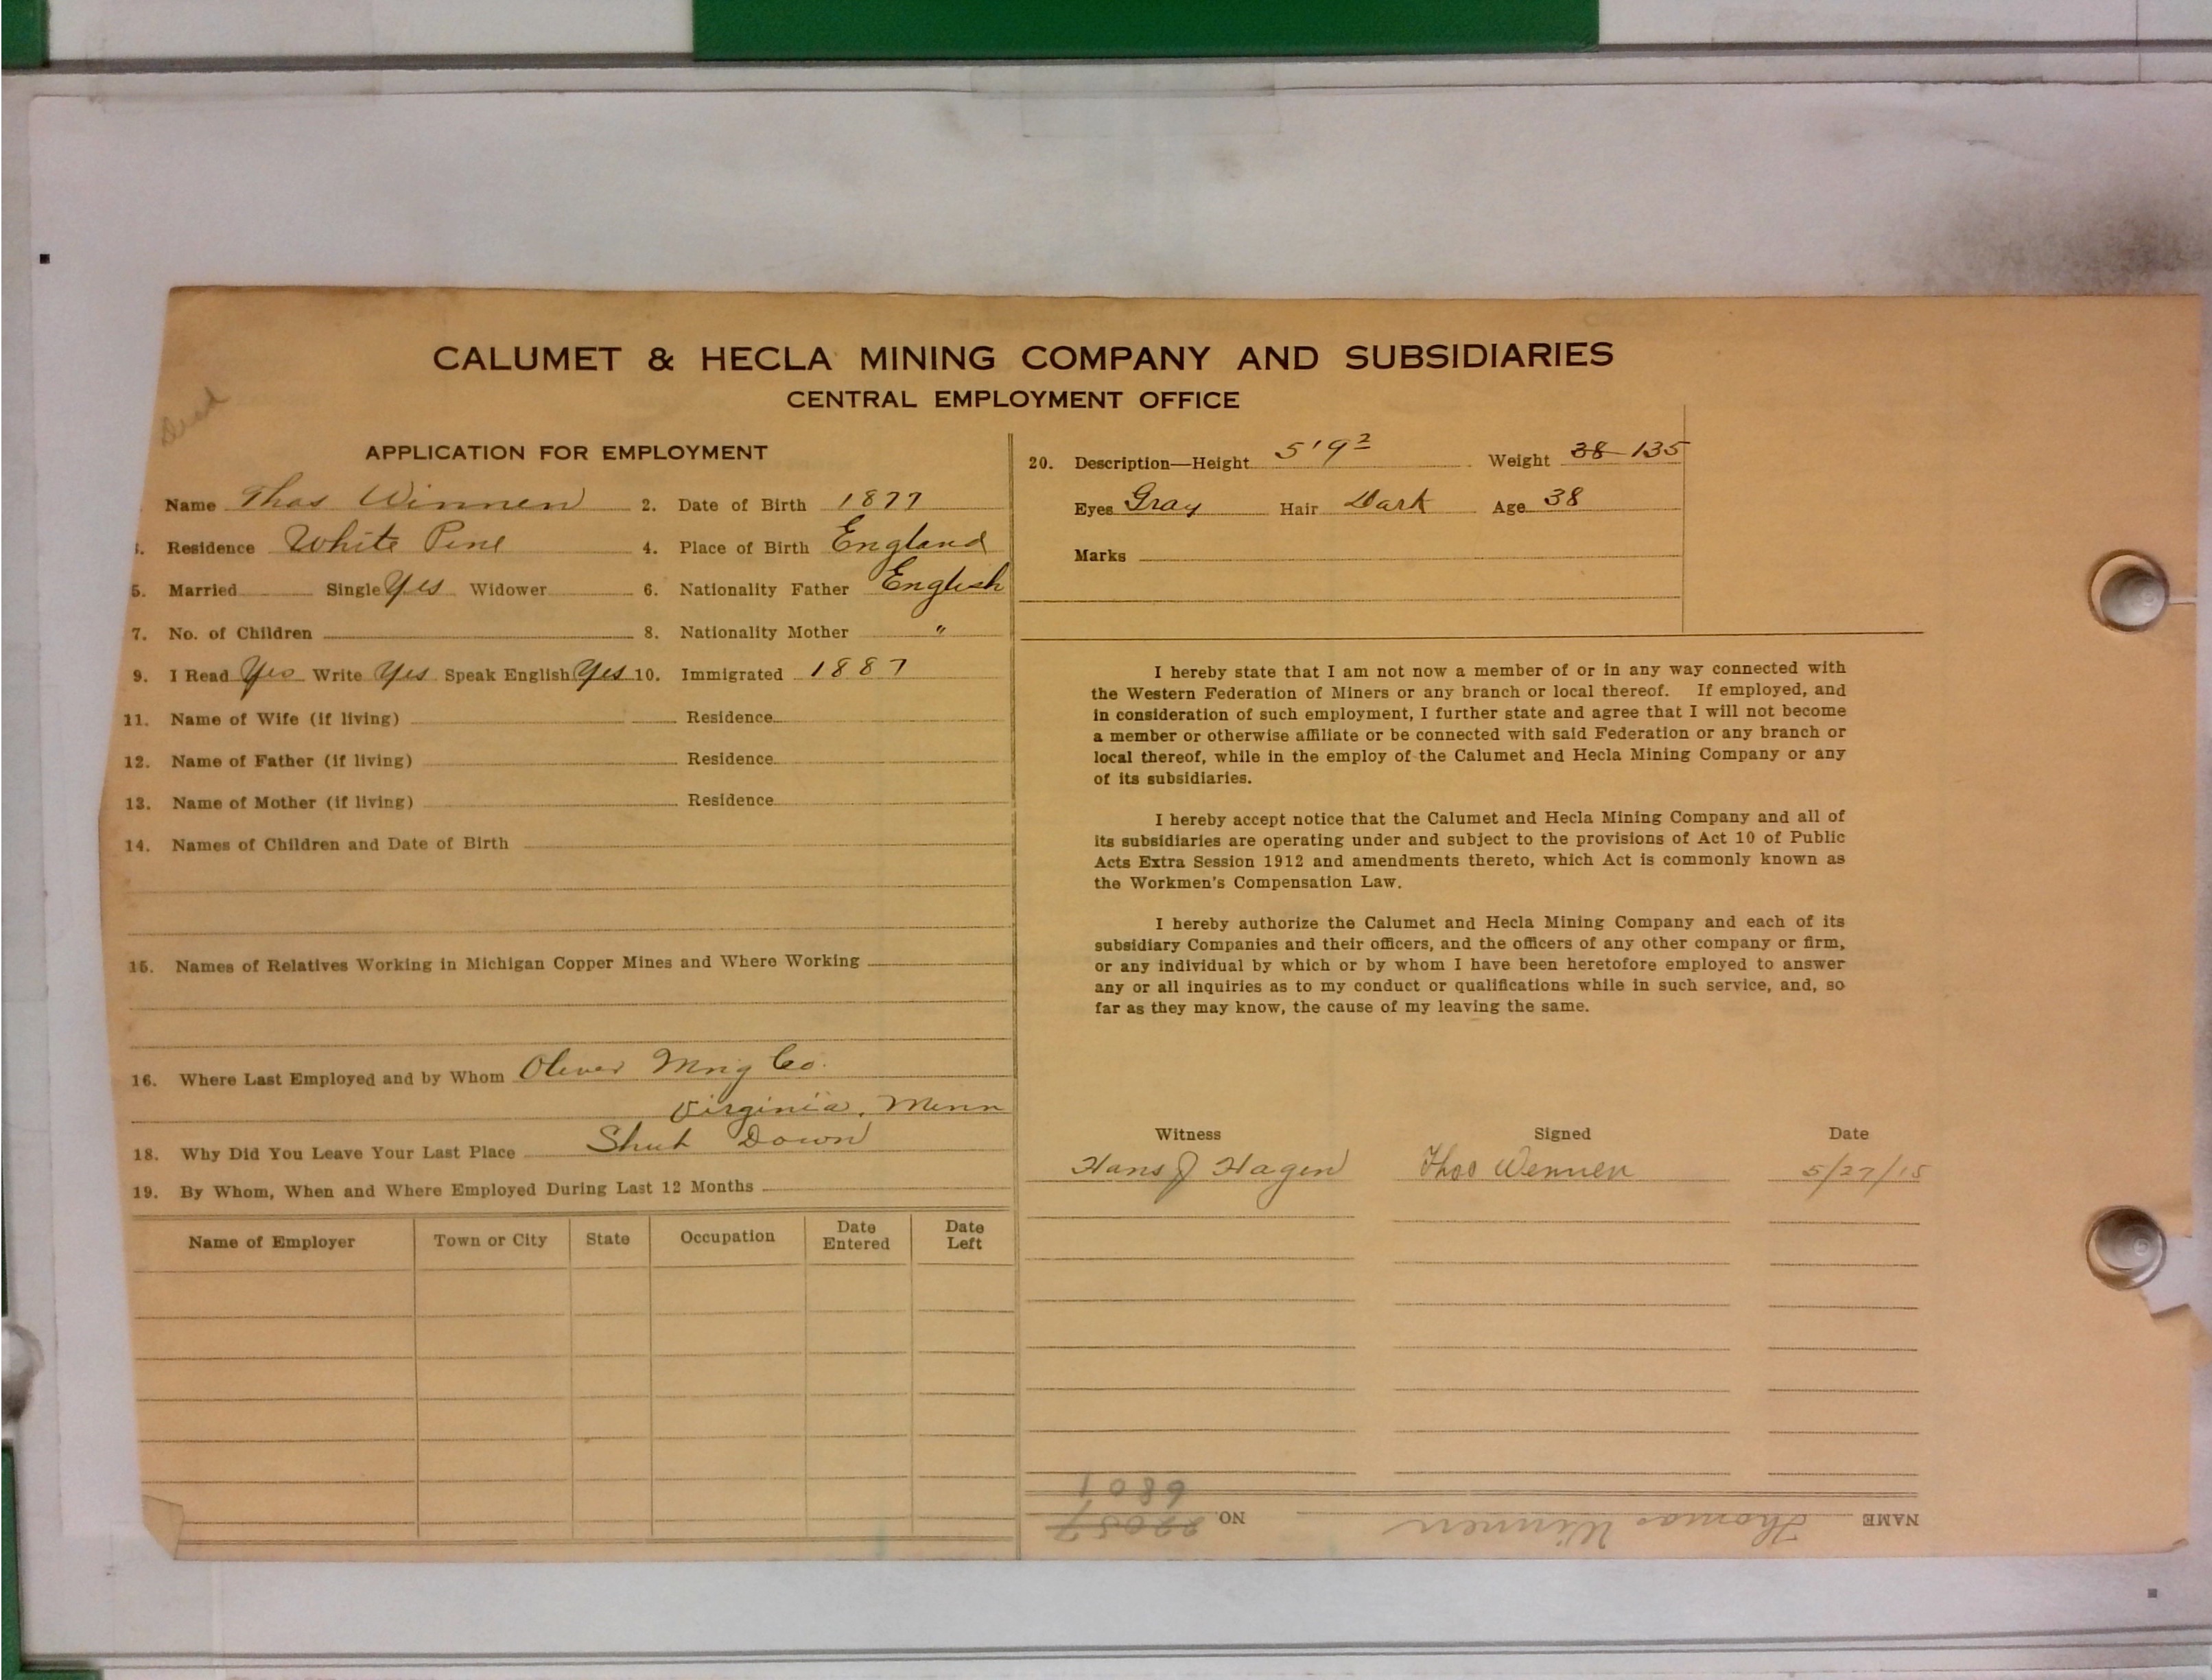 CALUMET & HECLA MINING COMPANY AND SUBSIDIARIES
CENTRAL EMPLOYMENT OFFICE
Dead
APPLICATION FOR EMPLOYMENT
Name Thos Winnen 2. Date of Birth 1877
3. Residence White Pine 4. Place of Birth England
5. Married Single Yes Widower 6. Nationality Father English
7. No. of Children 8. Nationality Mother "
9. I Read Yes Write Yes Speak English Yes 10. Immigrated 1887
11. Name of Wife (if living) Residence
12. Name of Father (if living) Residence
13. Name of Mother (if living) Residence
14. Names of Children and Date of Birth
15. Names of Relatives Working in Michigan Copper Mines and Where Working
16. Where Last Employed and by Whom Oliver Mng Co.
Virginia, Minn
18. Why Did You Leave Your Last Place Shut Down
19. By Whom, When and Where Employed During Last 12 Months
Name of Employer Town or City State Occupation Date Entered Date Left
20. Description—Height 5'9 2 Weight 38 135
Eyes Gray Hair Dark Age 38
Marks
I hereby state that I am not now a member of or in any way connected with
the Western Federation of Miners or any branch or local thereof. If employed, and
in consideration of such employment, I further state and agree that I will not become
a member or otherwise affiliate or be connected with said Federation or any branch or
local thereof, while in the employ of the Calumet and Hecla Mining Company or any
of its subsidiaries.
I hereby accept notice that the Calumet and Hecla Mining Company and all of
its subsidiaries are operating under and subject to the provisions of Act 10 of Public
Acts Extra Session 1912 and amendments thereto, which Act is commonly known as
the Workmen's Compensation Law.
I hereby authorize the Calumet and Hecla Mining Company and each of its
subsidiary Companies and their officers, and the officers of any other company or firm,
or any individual by which or by whom I have been heretofore employed to answer
any or all inquiries as to my conduct or qualifications while in such service, and, so
far as they may know, the cause of my leaving the same.
Witness Signed Date
Hans J Hagen Thos Wennen 5/27/15
NAME Thomas Winnen NO 22057
6801